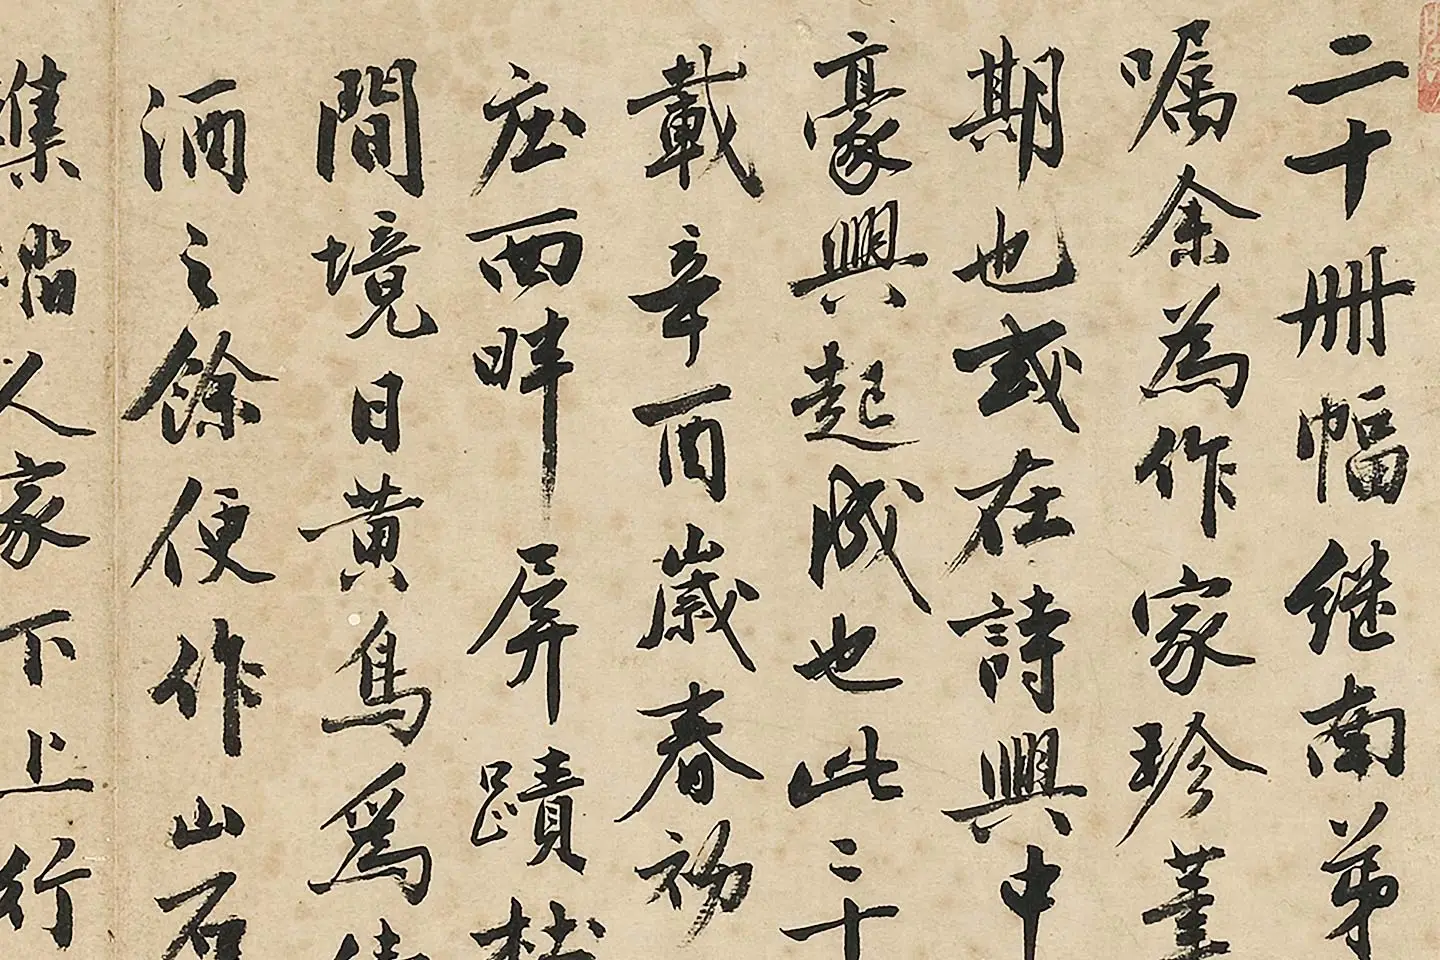 二十冊幅継南弟
嘱余為作家珍薹
期也或在詩興中
豪興起成也此三十
載辛酉歲春初
庄西畔屏蹟林
間境日黄鳥為
酒之餘便作山石
集 人家下上行